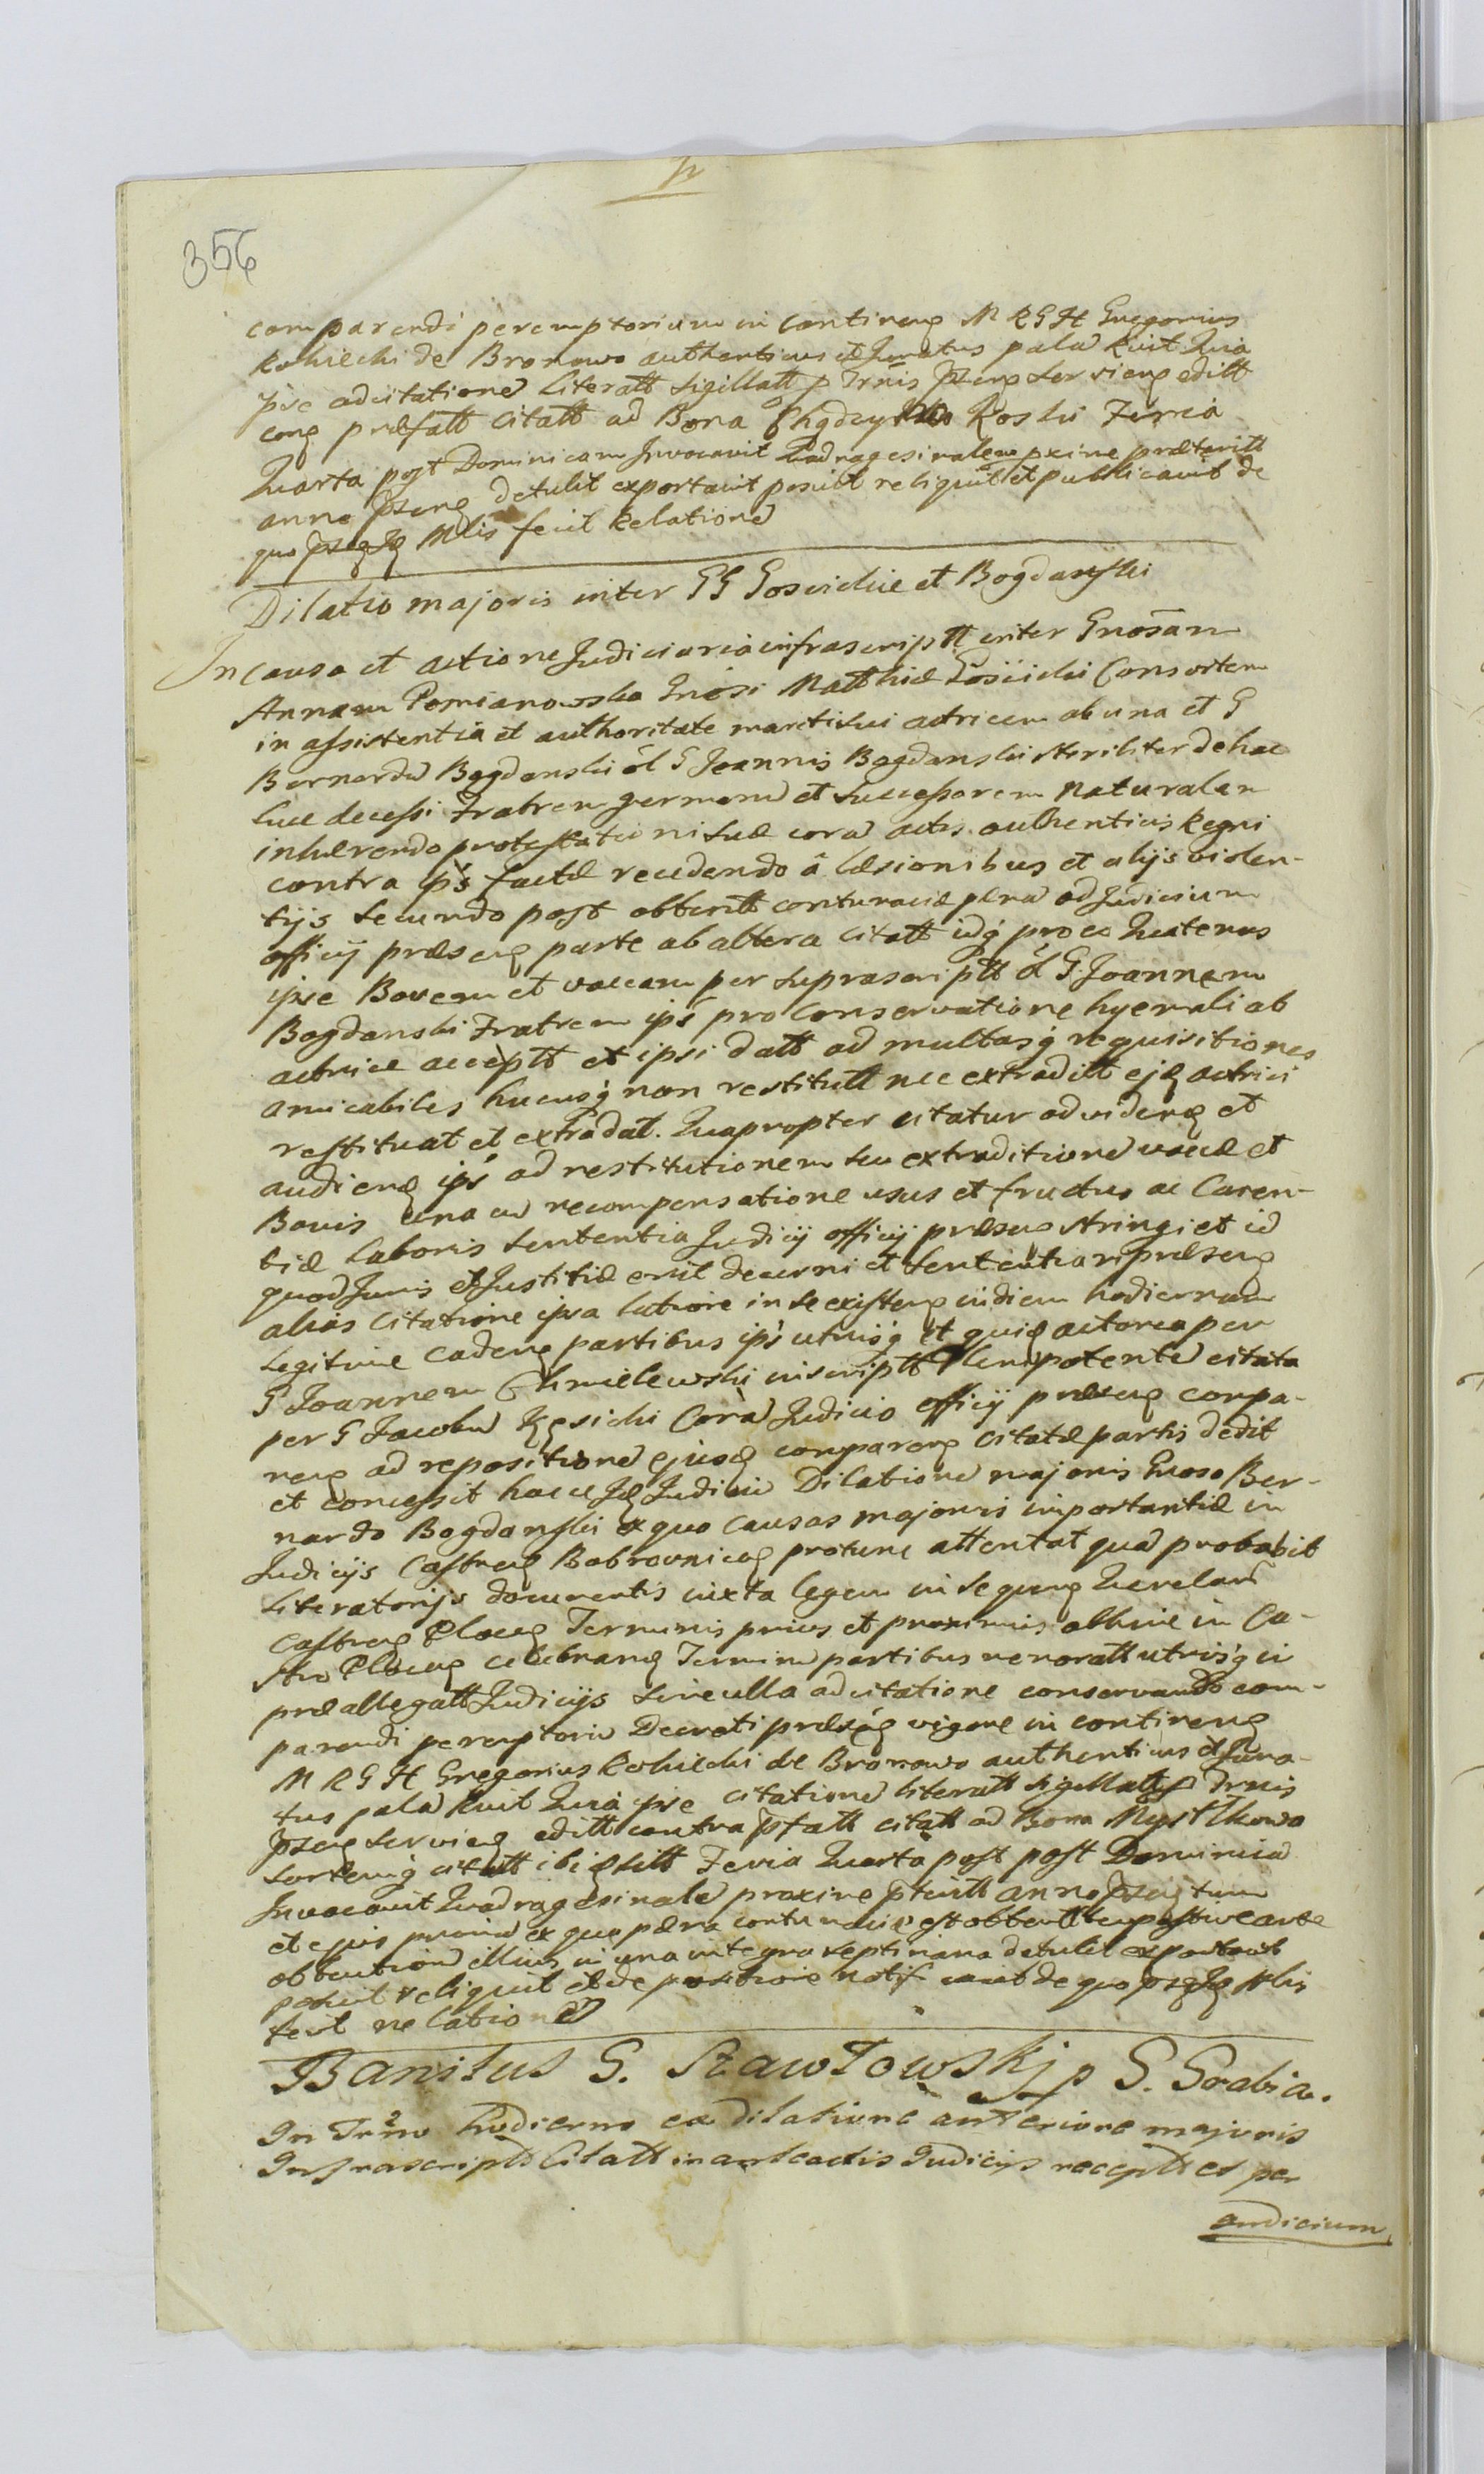 356
comparendi peremptorium in contineng M R G H Gregorius
Kohiechi de Bronowo authenticus et Juratus pala Ruit Quia
ipse adcitatione Literatt Sigillatt p Trnis pseng servieng editt
cong præfatt Citatt ad Bona Koski Feria
Quarta post Dominicam Invocavit Quadragesimalem pxime præteritt
anno pseng detulit exportavit posuitt reliquit et publicavit de
quo Mlis fecit Relatione
Dilatio majoris inter GG Goscickie et Bogdanski
In causa et actione Judiciaria infrascriptt inter Gnosam
Annam Pomianowska Gnosi Matthiæ Gosciicki Consortem
in assistentia et authoritate mariti sui actricem ab una et G
Bernardu Bogdanski ol G Joannis Bogdanski steriliter de hac
luce decessi Fratrem germanu et Successorem Naturalem
inhærendo protestationi suæ cora actis authenticis Regni
contra ips factæ recedendo â læsionibus et alijs violen-
tijs secundo post obtentt contumaciæ pæna ad Judicium
officij præseng parte ab altera Citatt idq pro eo Quatenus
ipse Bovem et vaccam per suprascriptt ol G Joannem
Bogdanski Fratrem ips pro conservatione hyemali ab
actrice acceptt et ipsi datt ad multasq requisitiones
amicabiles hucusq non restitutt nec extraditt actrici
restituat et extradat. Quapropter citatur ad videng et
audieng ips ad restitutionem seu extraditione vaccæ et
Bovis una cu recompensatione usus et fructus ac Caren-
tiæ laboris sententia Judicij officij præseng stringi et id
quod Juris et Justitiæ erit decerni et sententiari præseng
alias Citatione ipsa latiore in se existeng in diem hodiernam
Legitime cadeng partibus ips utrisq et quid actorea per
G Joannem Chmielewski inscriptt Plenipotente citata
per G Jacobu Kęsicki Cora Judicio officij præseng compa-
reng ad repositione ejusd compareng citatæ partis dedit
et concessit hocce Judicio Dilatione majoris Gnoso Ber-
nardo Bogdanski ex quo causas majoris importantiæ in
Judicijs Castreng Bobrovniceng protunc attentat qua probabit
Literatorijs documentis iuxta legem in sequeng Querelaru
Castreng Ploceng Terminis prius et proximius abhinc in Ca-
stro Ploceng celebrand Terminu partibus memoratt utrisq in
præallegatt Judicijs sine ulla adcitatione conservando com-
parendi peremptoriu Decreti præseng vigore in contineng
M R G H Gregorius Kohiechi de Bronowo authenticus et Jura-
tus pala Ruit Quia ipse citatione literatt sigillatt p Trnis
pseng serviend editt contra pfatt citatt ad Bona Mystkowo
sortemq citatt ibid sitt Feria Quarta post post Dominica
Invocavit Quadragesimale proxime pteritt anno pseng tum
et ejus prima ex quo pæna contumaciæ est obtentt tempestive ante
obtentione illius in una integra septimana detulit exportavit
posuit reliquit et de positione notificavit de quo Mlis
fecit relatione
Banitus G. Szawłowskj p G. Grabia.
In Trno hodierno ex dilatione anteriore majoris
Infrascriptt Citatt in anteactis Judicijs receptt et per
Judicium